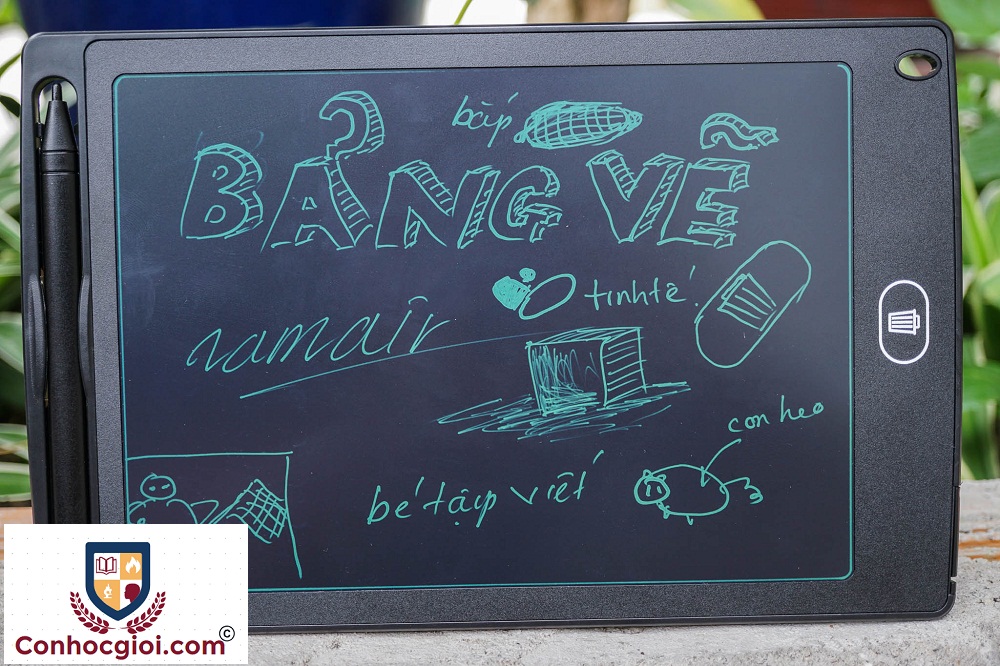 bắp
BẢNG VẼ
tinhtế!
namair
con heo
bé tập viết
Conhocgioi.com ©